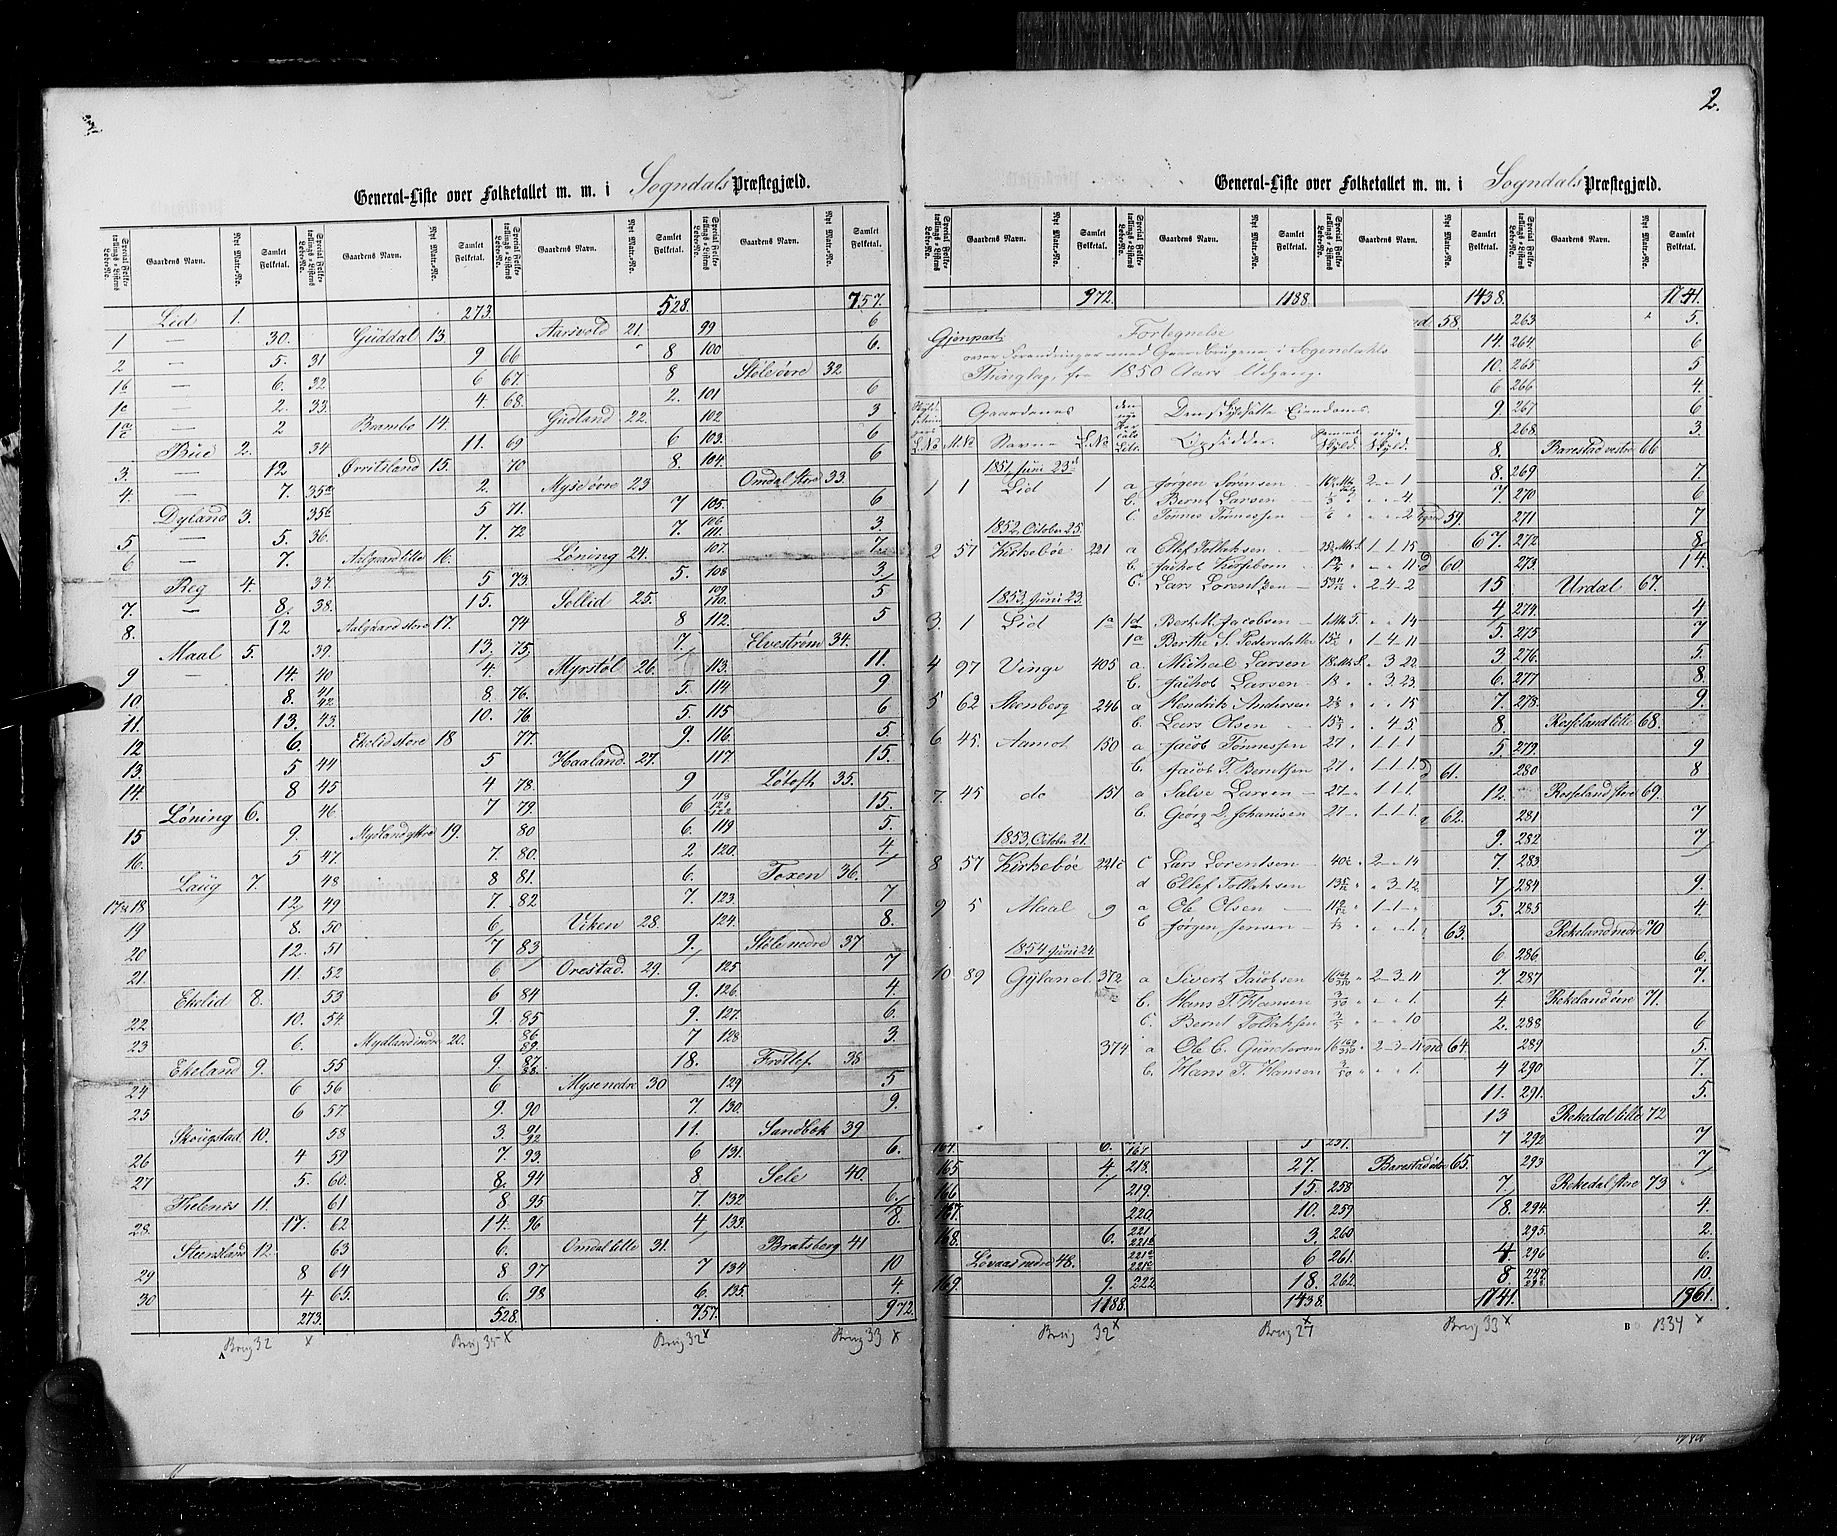 General-Liste over Folketallet m. m. i Sogndals Præstegjæld.
Special Folketællings-Listens Løbe-No. Gaardens Navn. Nyt Matr.-No. Samlet Folketal. Special Folketællings-Listens Løbe-No. Gaardens Navn. Nyt Matr.-No. Samlet Folketal. Special Folketællings-Listens Løbe-No. Gaardens Navn. Nyt Matr.-No. Samlet Folketal. Special Folketællings-Listens Løbe-No. Gaardens Navn. Nyt Matr.-No. Samlet Folketal.
Lid 1.
1 — 30.
2 — 5.
1b — 6.
1c — 2.
— 2
Bue 2.
3. — 12
4. — 7.
Dyland 3.
5 — 5.
6 — 7.
Reg 4.
7. — 8.
8. 12
Maal 5.
9 — 14.
10. 8.
11. 13.
12 6.
13. 5
14. 8
Løning 6.
15 9
16. 5
Laug 7.
17 & 18 12
19 8.
20 12.
21. 11.
Ekelid 8.
22 10.
23 6.
Ekeland 9.
24 6
25 6
Skougstad 10.
26 4
27 5.
11.
28. 17.
Steensland 12.
29 8
30 4
273.
273.
Guddal 13.
31 9
32. 6
33. 4
Brambo 14.
34 11.
Ørritsland 15.
35a 2.
35b 5
36. 7.
Aalgaard lille 16.
37. 5
38. 15.
Aalgaard store 17.
39. 13,
40 4.
41 42 8
43. 10.
Ekelid store 18
44 5
45 4
46. 7
Mydland yttre 19.
47. 7.
48 8
49 7.
50 6,
51 7
52 6
53 6
54. 9.
Mydland indre 20.
55 9.
56 6
57. 9.
58 3.
59 7.
60. 8.
61 8
62 14.
63 6.
64 8
65. 6.
528.
528.
Aarsvold 21.
66 8
67. 8
68. 2.
Gudland 22.
69 6
70 8.
Myse øvre 23
71. 7
72 7.
Løning 24.
73. 5.
Sellid 25.
74 8
75, 7.
Myrstøl 26.
76. 5.
76. 5.
77. 9.
Haaland 27.
78. 9
79. 6
80 6.
80. 2
81. 6.
82 7.
Viken 28.
83 9.
Orestad. 29.
84 9.
85 9.
86 89. 7
87 88. 18.
Myse nedre 30
90 7.
91 92 11.
93. 6
94 8
95 7.
96 4
Omdal lille 31.
97 7
98 6.
757.
757.
99 6
100 6.
Støle øvre 32.
101 6
102 3
103. 6
104. 6
Omdal store 33.
105. 6
106. 111. 3.
107. 7
108 3
109 110. 5
112. 5
Elvestrøm 34.
113. 11.
114 9
115 6
116. 5.
117. 15.
Løtoft 35.
15.
119 5.
120. 4.
Foxen 36.
123. 7
124. 8.
Støle nedre 37
125 7
126. 4.
127. 6.
128 3.
Frøtlef 38
129 5
130. 9.
Sandbek 39
131. 6.
Sele 40.
132 6.
133. 8.
Bratsberg 41
134 10
135. 4.
972.
Brug 32 × Brug 35 × Brug 32 × Brug 33 ×
A
2.
General-Liste over Folketallet m. m. i Sogndals Præstegjæld.
Special Folketællings-Listens Løbe-No. Gaardens Navn. Nyt Matr.-No. Samlet Folketal. Special Folketællings-Listens Løbe-No. Gaardens Navn. Nyt Matr.-No. Samlet Folketal. Gaardens Navn. Nyt Matr.-No. Samlet Folketal. Special Folketællings-Listens Løbe-No. Gaardens Navn. Nyt Matr.-No. Samlet Folketal.
972. 1188. 1438. 1741.
Gjenpart. Fortegnelse
over Forandringer med Gaardbrugene i Sogendahls
Thinglag, fra 1850 Aars Udgang.
Gaardenes Den skyldsatte Eiendoms.
L.No M.No Navne L.No Opsidder. Skyld. Skyld.
1851, Juni 23d
1 1 Lid 1 a Jørgen Sørensen 2 - 1
b. Bernt Larsen 4
c Tønnes Tønnessen 2
1852, October 25.
2 57 Kirkebøe 221 a Ellef Tollaksen 1 - 1 - 15
b. Jackob Kirkebøe 11
c. Lars Lorentzen 2 - 4 - 2
1853, Juni 23.
3. 1 Lid 1a 1d Bert M. Jacobsen 14
1a Berthe S. Pedersdatter 1 - 4 - 11
4 97 Vinge 405 a. Michael Larsen 18 3 22
b. Jackob Larsen 18 3. 23.
5 62 Steenberg 246 a Hendrik Andersen 15
b. Lars Olsen 4 5
6 45. Aamot 150 a Jacob Tønnessen 27 1 - 1 - 1
b. Jacob T. Berntsen 27 1 - 1 - 1
7. 45 do 151 a Salve Larsen 27 1 - 1 - 1
b. Georg D. Johanisen 27 1 - 1 - 1
1853, October 21.
8 57 Kirkebøe 221c c Lars Lorentsen 2 - 14
d Ellef Tollaksen 3. 12
9 5 Maal 9 a Ole Olsen 1 - 1
b Jørgen Jensen 1.
1854 Juni 24.
10 89 Gyland 372 a Sivert Jacobsen 2 - 3 - 11
b. Hans T. Hansen 1.
c. Bernt Tollaksen 10
374 a Ole C. Gundersen 2 - 3 - 11
b. Hans T. Hansen 1.
164. 6.
165 4.
166
167.
168. 6.
Løvaas nedre 48.
169. 9.
1188.
218. 27.
219. 15.
220. 10.
221 221b 3.
221c 6
222 18.
1438.
58.
14.
10.
6
9.
8.
8.
7
59.
67.
60.
15
4
5.
3
6.
7.
8.
5.
61.
12.
62.
9.
7
7
5.
63.
6
7
4
2.
64.
4
11.
13
257. 7
Barestad øvre 65.
258 7
259 8.
260
261. 4
262. 8.
1741.
263 5.
264 6
265 5
266 4
267 6
268. 3.
Barestad vestre 66
269 7.
270 6
271 7
272 8
273. 14.
Urdal 67.
274. 4
275 7
276. 5.
277 8.
278. 9.
Rosseland lille 68.
279. 9
280 8
Rosseland store 69.
281 7
282 7
283
284 9.
285 4.
Rekeland nedre 70
286 6.
287 7.
Rekeland øvre 71.
288 6
289 5.
290 7.
291. 5.
Rekedal lille 72
292 7
293 7
Rekedal store 73
294 4.
295. 2.
296 6.
297 10.
1961.
Brug 32 × Brug 27 × Brug 33 × B B34 ×